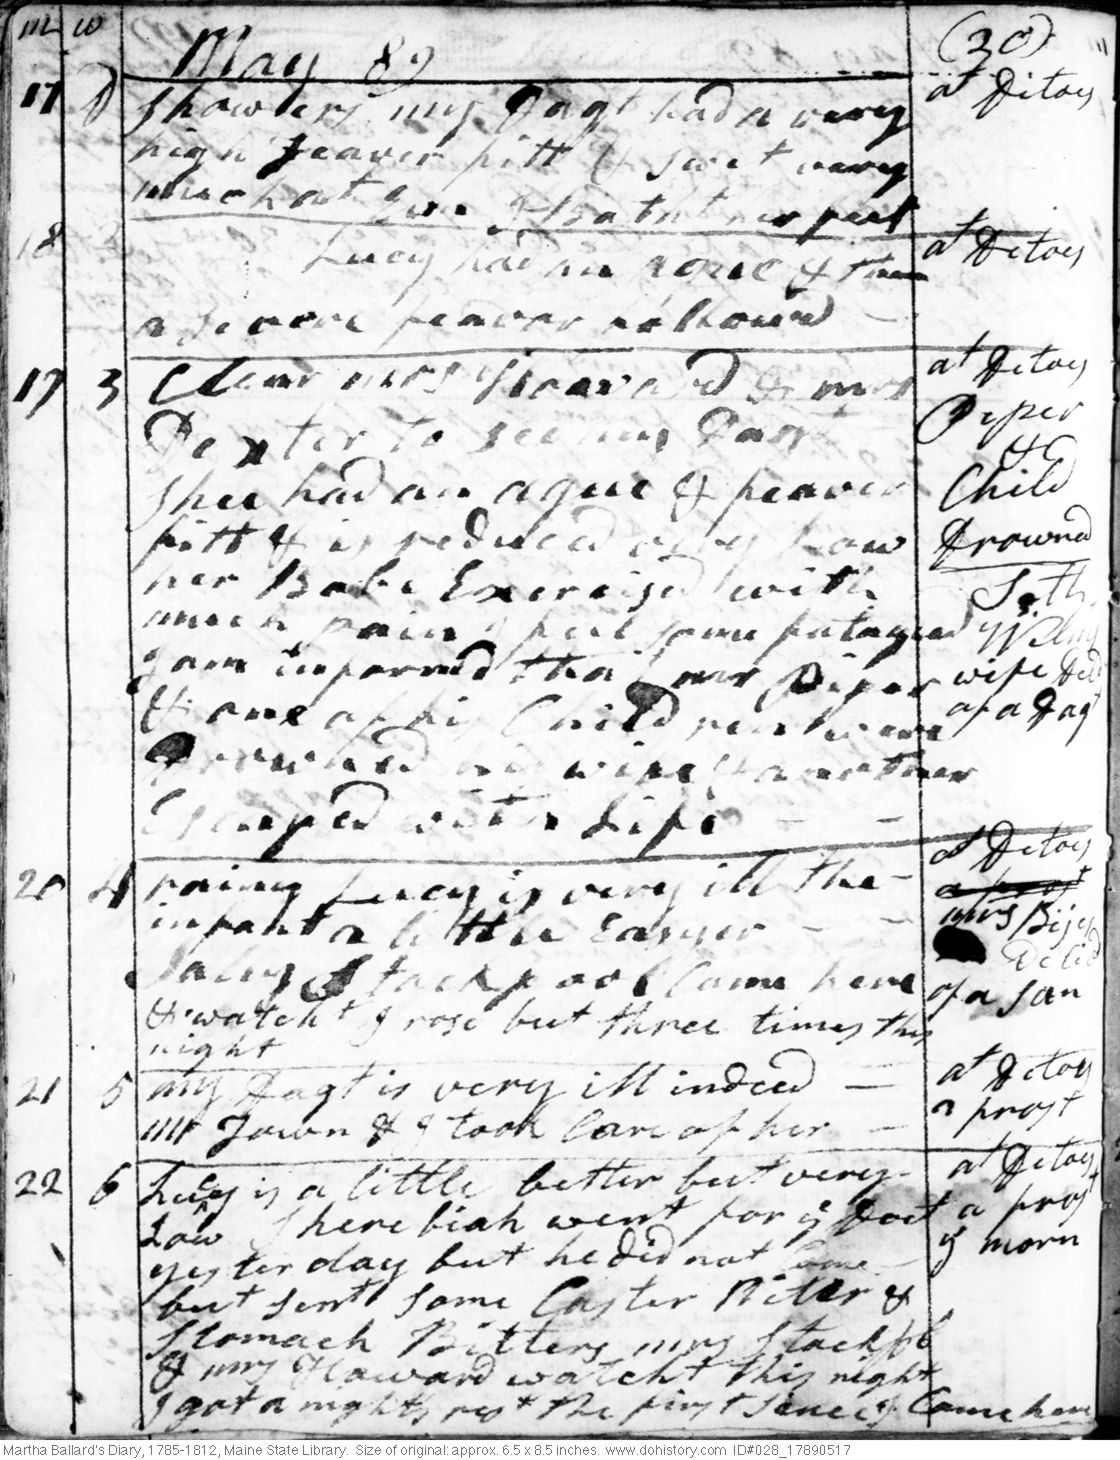 m w
May 89
(30)
17 D Showers my Dagt had a very
high Feaver fitt & Swet very
much at Evn I Batht her feet
at Ditoes
18 Lucy had an ague & then
a Severe feavor followd –
at Ditoes
17 3 Clear mrs Howard & mrs
Dexter to see my Dagt
Shee had an ague & feaver
fitt & is reduced very Low
her Babe Exercisd with
much pain I feel some fatagued
I am informd that mr Piper
& one of his Children were
Drowned his wife & another
Escaped with Life – –
at Ditoes
Piper
&c
Child
drowned
Seth
Wilms
wife Deld
of a Dagt
20 4 rainy Lucy is very ill the –
infant a little Easyer – –
Saley Stackpool Came here
& watcht I rose but three times this
night
at Ditoes
a frost
mrs Bijer
Delid
of a son
21 5 my Dagt is very ill indeed –
mr Town & I took Care of her –
at Ditoes
a frost
22 6 Lucy is a little better but very
Low Sherebiah went for ye Doct
yesterday but he did not Come –
but sent some Caster &
Stomach Bitters mrs Stackpol
& mrs Howard watcht this night
I got a nights rest the first Since I Came here
at Ditoes
a frost
ye morn
Martha Ballard's Diary, 1785-1812, Maine State Library. Size of original: approx. 6.5 x 8.5 inches. www.dohistory.com ID#028_17890517